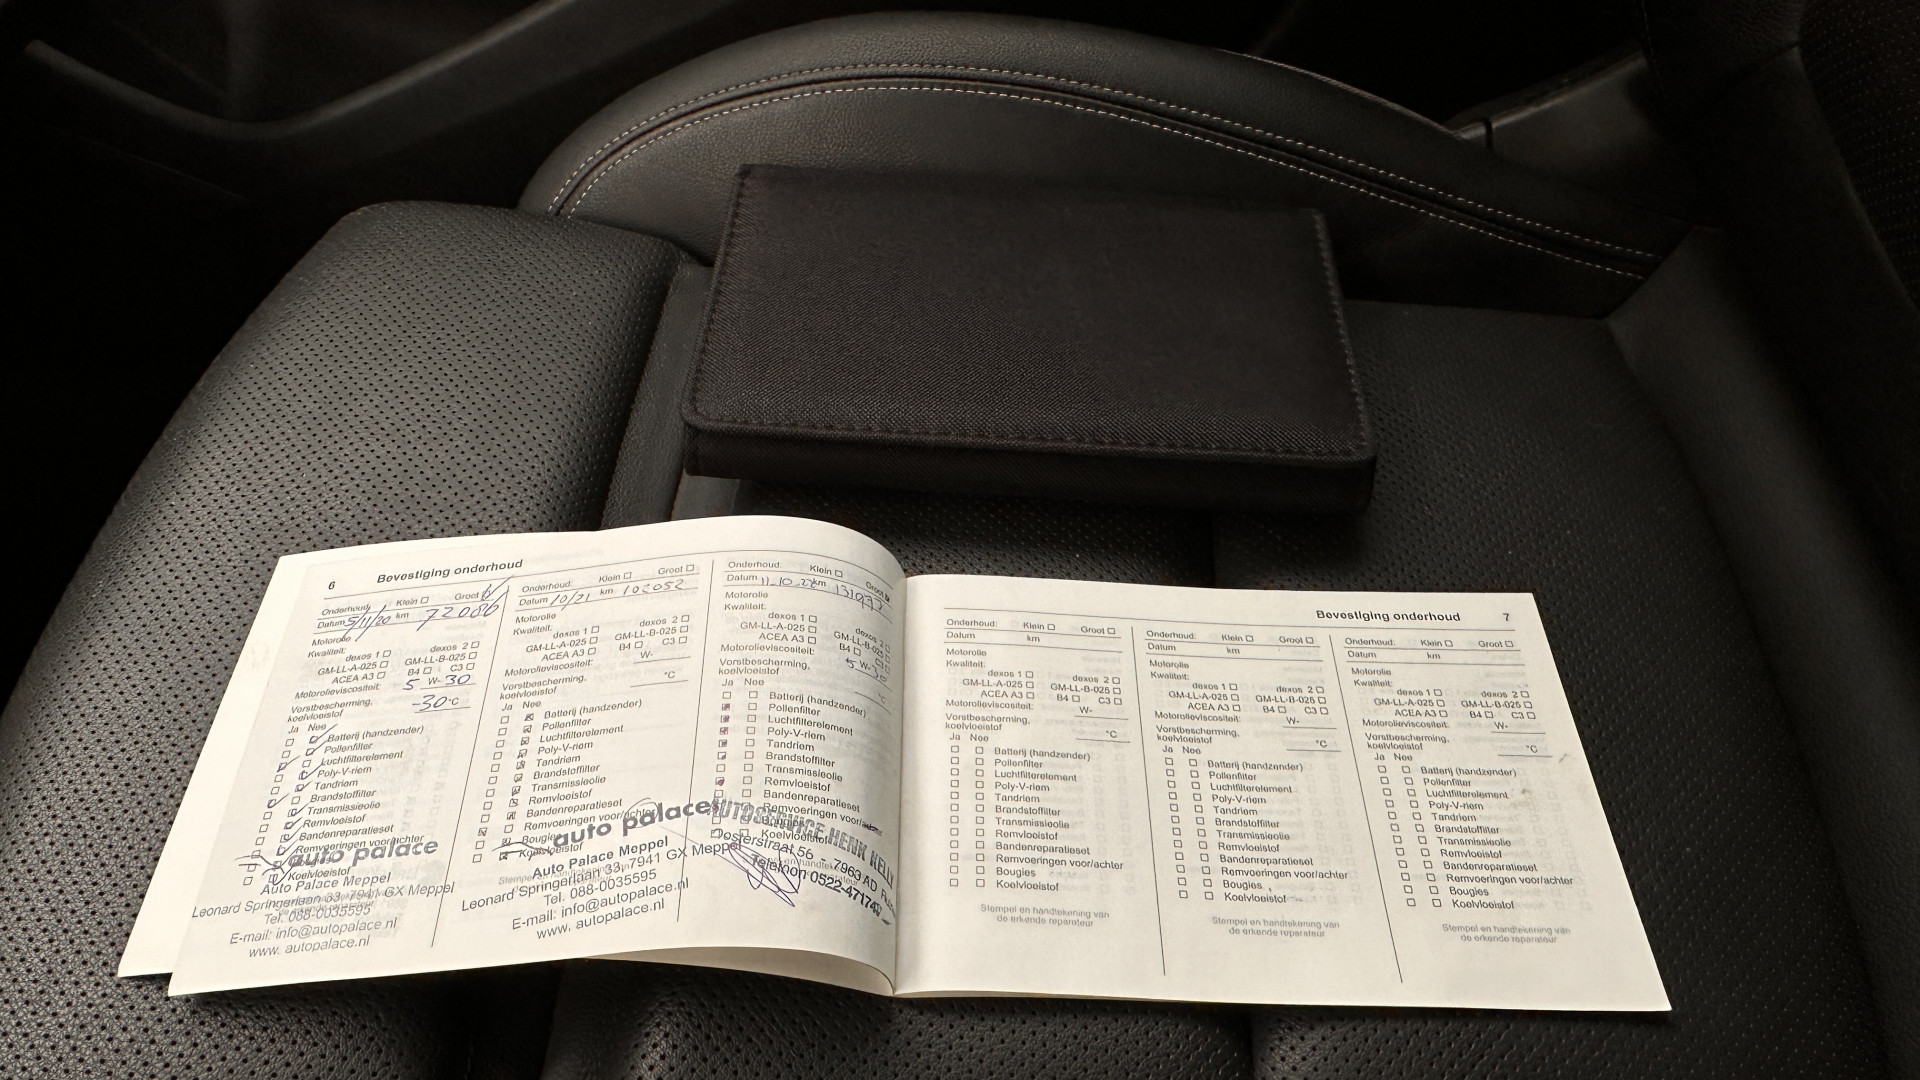 6 Bevestiging onderhoud
Onderhoud: Klein Groot
Datum 5/11/20 km 72086
Motorolie
Kwaliteit:
dexos 1 dexos 2
GM-LL-A-025 GM-LL-B-025
ACEA A3 B4 C3
Motorolieviscositeit: 5 W- 30
Vorstbescherming, koelvloeistof -30 °C
Ja Nee
Batterij (handzender)
Pollenfilter
Luchtfilterelement
Poly-V-riem
Tandriem
Brandstoffilter
Transmissieolie
Remvloeistof
Bandenreparatieset
Remvoeringen voor/achter
Koelvloeistof
auto palace
Auto Palace Meppel
Leonard Springerlaan 33, 7941 GX Meppel
Tel. 088-0035595
E-mail: info@autopalace.nl
www. autopalace.nl
Onderhoud: Klein Groot
Datum 10/21 km 102052
Motorolie
Kwaliteit:
dexos 1 dexos 2
GM-LL-A-025 GM-LL-B-025
ACEA A3 B4 C3
W-
Vorstbescherming, koelvloeistof °C
Ja Nee
Batterij (handzender)
Pollenfilter
Luchtfilterelement
Poly-V-riem
Tandriem
Brandstoffilter
Transmissieolie
Remvloeistof
Bandenreparatieset
Remvoeringen voor/achter
Bougies
Koelvloeistof
auto palace
Auto Palace Meppel
Leonard Springerlaan 33, 7941 GX Meppel
Tel. 088-0035595
E-mail: info@autopalace.nl
www. autopalace.nl
Onderhoud: Klein Groot
Datum 11-10-22 km
Motorolie
Kwaliteit:
dexos 1 dexos 2
GM-LL-A-025 GM-LL-B-025
ACEA A3 B4
Motorolieviscositeit: 5 W-30
Vorstbescherming, koelvloeistof °C
Ja Nee
Batterij (handzender)
Pollenfilter
Luchtfilterelement
Poly-V-riem
Tandriem
Brandstoffilter
Transmissieolie
Remvloeistof
Bandenreparatieset
Remvoeringen
Bougies
Koelvloeistof
AUTOSERVICE HENK KELLY
Oosterstraat 56 - 7963 AD
Telefoon 0522-471740
Bevestiging onderhoud 7
Onderhoud: Klein Groot
Datum km
Motorolie
Kwaliteit:
dexos 1 dexos 2
GM-LL-A-025 GM-LL-B-025
ACEA A3 B4 C3
Motorolieviscositeit: W-
Vorstbescherming, koelvloeistof °C
Ja Nee
Batterij (handzender)
Pollenfilter
Luchtfilterelement
Poly-V-riem
Tandriem
Brandstoffilter
Transmissieolie
Remvloeistof
Bandenreparatieset
Remvoeringen voor/achter
Bougies
Koelvloeistof
Stempel en handtekening van
de erkende reparateur
Onderhoud: Klein Groot
Datum km
Motorolie
Kwaliteit:
dexos 1 dexos 2
GM-LL-A-025 GM-LL-B-025
ACEA A3 B4 C3
Motorolieviscositeit: W-
Vorstbescherming, koelvloeistof °C
Ja Nee
Batterij (handzender)
Pollenfilter
Luchtfilterelement
Poly-V-riem
Tandriem
Brandstoffilter
Transmissieolie
Remvloeistof
Bandenreparatieset
Remvoeringen voor/achter
Bougies
Koelvloeistof
Stempel en handtekening van
de erkende reparateur
Onderhoud: Klein Groot
Datum km
Motorolie
Kwaliteit:
dexos 1 dexos 2
GM-LL-A-025 GM-LL-B-025
ACEA A3 B4 C3
Motorolieviscositeit: W-
Vorstbescherming, koelvloeistof °C
Ja Nee
Batterij (handzender)
Pollenfilter
Luchtfilterelement
Poly-V-riem
Tandriem
Brandstoffilter
Transmissieolie
Remvloeistof
Bandenreparatieset
Remvoeringen voor/achter
Bougies
Koelvloeistof
Stempel en handtekening van
de erkende reparateur